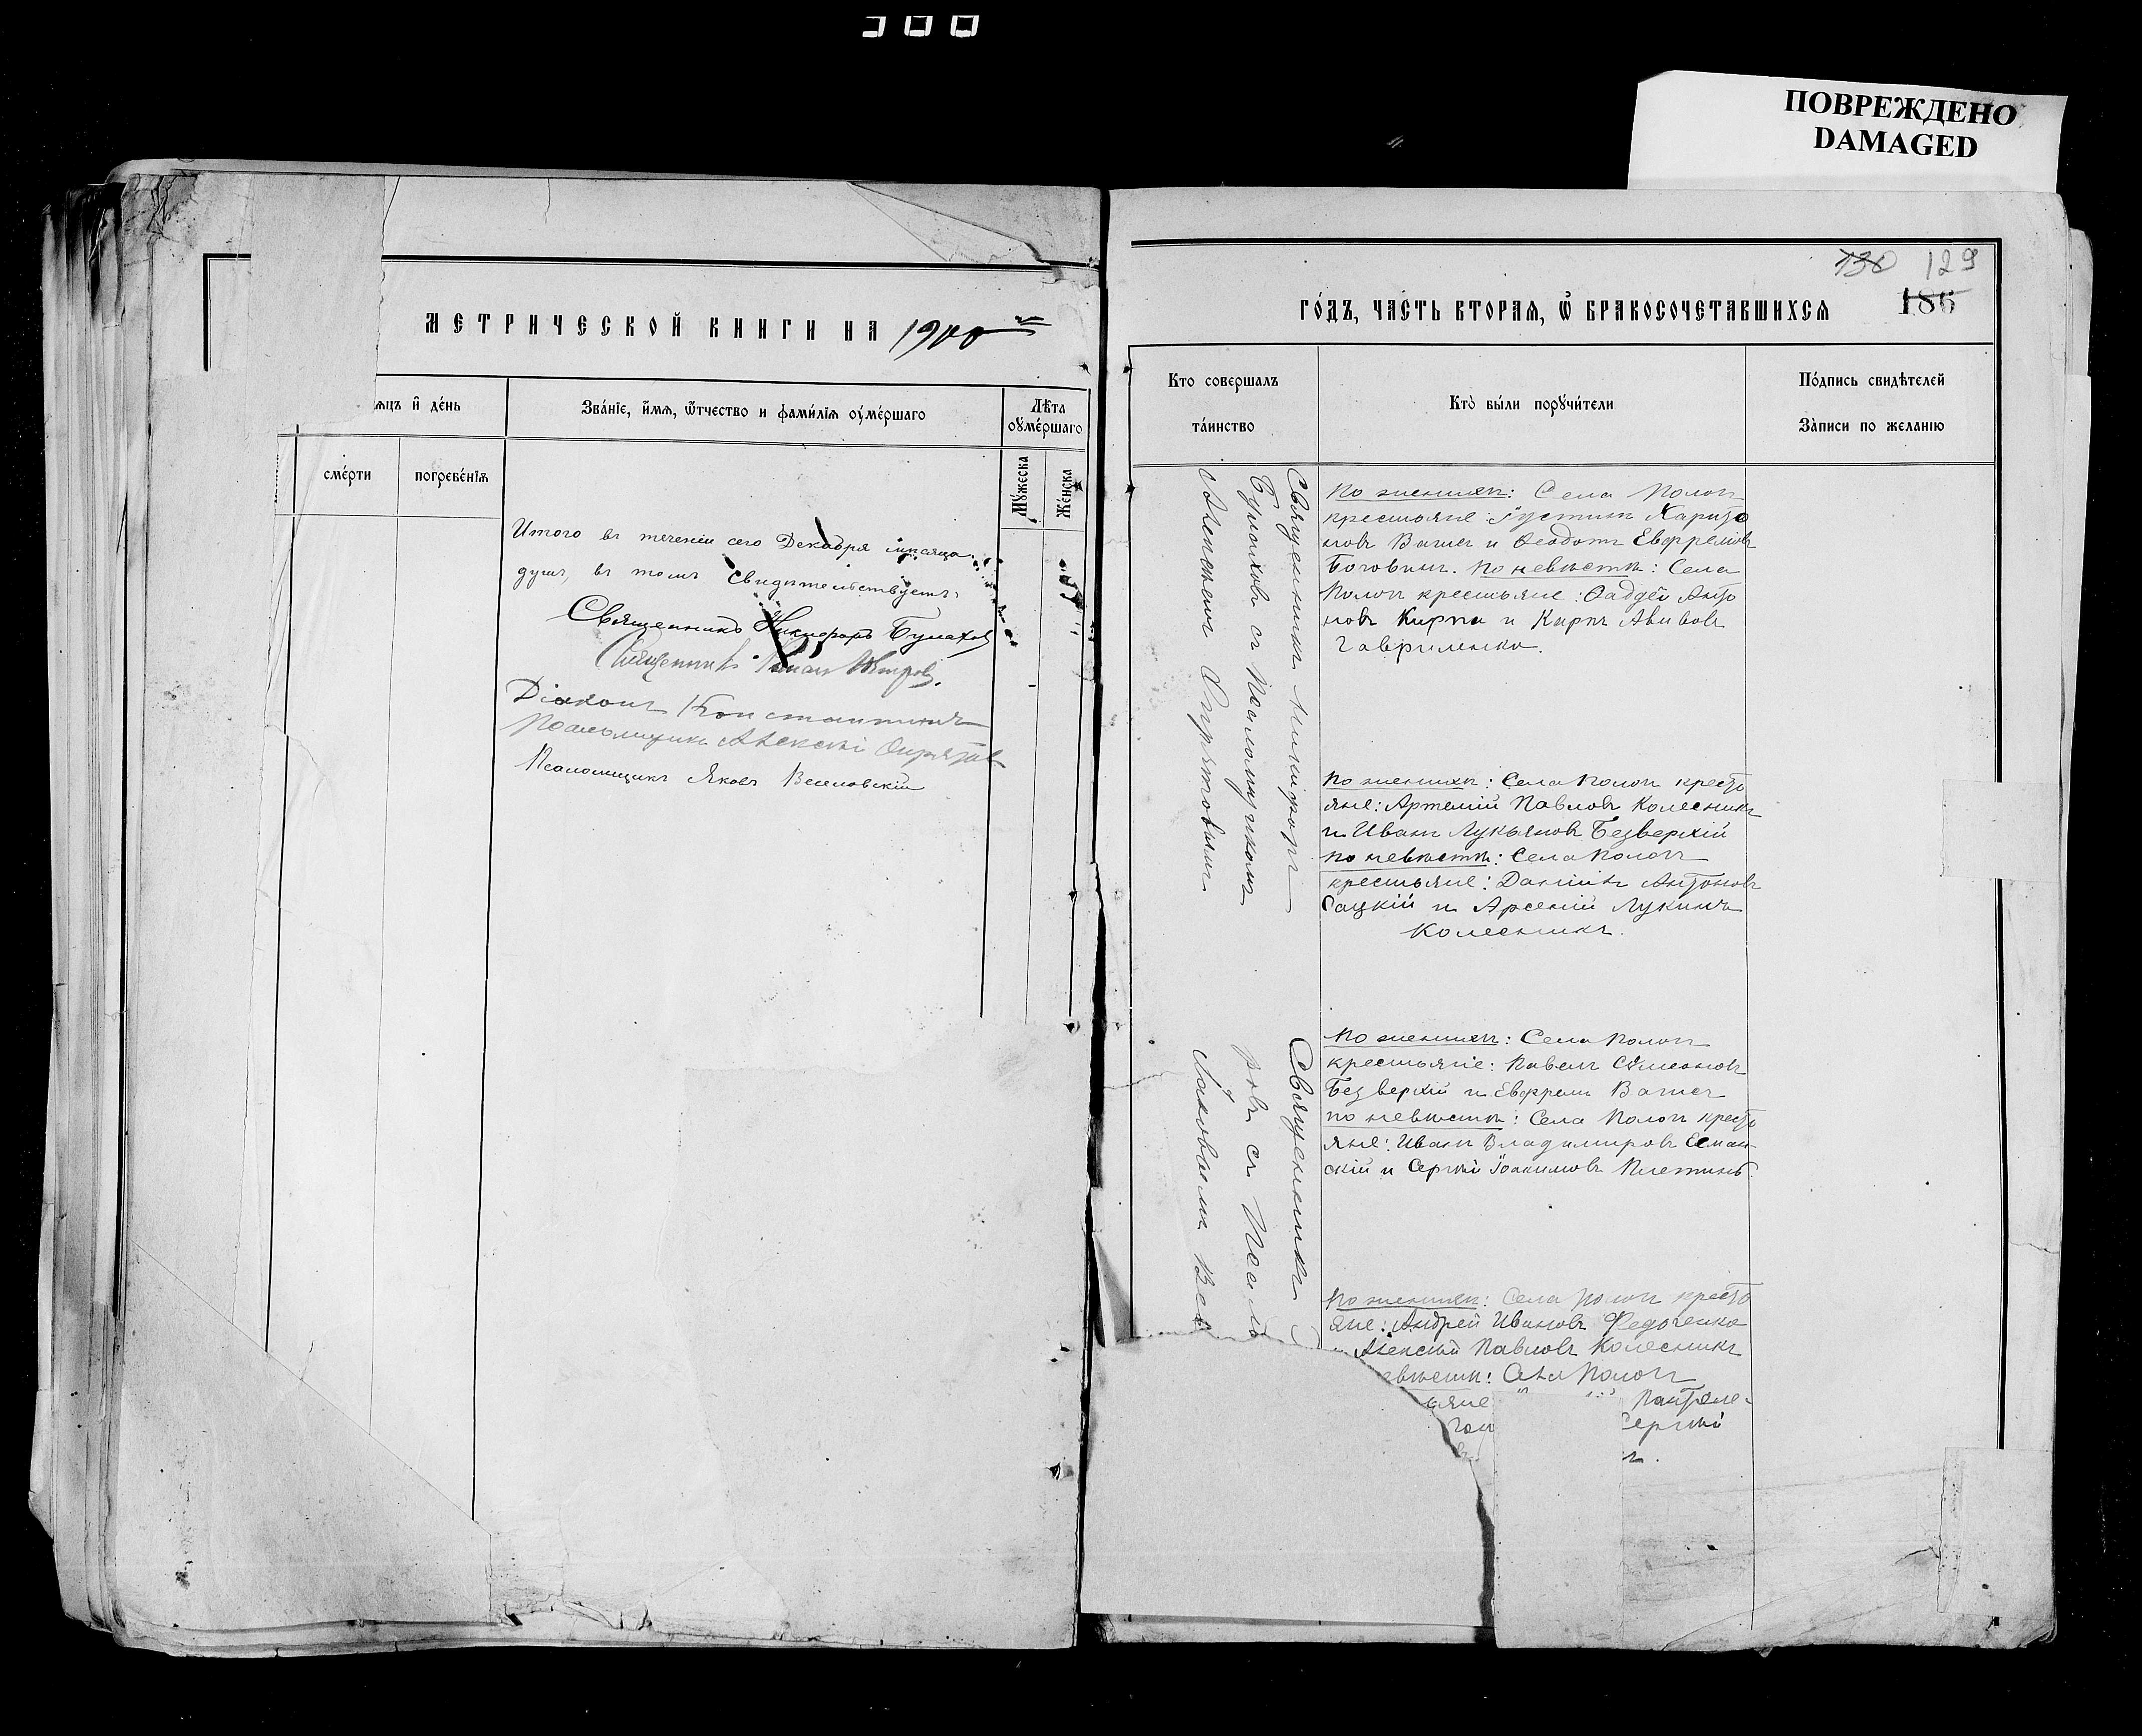 ПОВРЕЖДЕНО
DAMAGED
МЕТРИЧЕСКОЙ КНИГИ НА 1900
яцъ и҆ де́нь
Зва́нїе, и҆́мѧ, ѿтчество и фами́лїѧ оу҆ме́ршаго
Лѣ́та
оу҆ме́ршаго
сме́рти
погребе́нїѧ
Мꙋ́жеска
Же́нска
Итого въ теченіи сего Декабря мѣсяца
душъ, въ томъ свидѣтельствуемъ
Священникъ Никифоръ Булахов
Священникъ Петров
Діаконъ Константинъ
Псаломщикъ Алексѣй
Псаломщикъ Яковъ Веселовскій
130 129
186
ГО́ДЪ, ЧА́СТЬ ВТОРАѦ, Ѡ҆ БРАКОСОЧЕТАВШИХСѦ
Кто совершалъ
та́инство
Кто̀ бы́ли порꙋчи́тели
По́дпись свидѣ́телей
За́писи по желанїю
Священникъ Никифоръ
съ Псаломщикомъ
Алексѣемъ
По женихѣ: Села Пологъ
крестьяне: Іустинъ Харито
новъ Вашег и Ѳеодотъ Евфремовъ
Боговинъ. По невѣстѣ: Села
Пологъ крестьяне: Ѳаддей Анто
новъ Кирпа и Карпъ Авивовъ
Гавриленко.
По женихѣ: Села Пологъ кресть
яне: Артемій Павловъ Колесникъ
и Иванъ Лукьяновъ Безверхій
по невѣстѣ: Села Пологъ
крестьяне: Даніилъ Антоновъ
Сацкій и Арсеній Лукинъ
Колесникъ.
Священникъ
ровъ съ Псалом
Іаковомъ Вес
По женихѣ: Села Пологъ
крестьяне: Павелъ Симеоновъ
Безверхій и Евфремъ Вашег
по невѣстѣ: Села Пологъ кресть
яне: Иванъ Владимировъ Семан-
скій и Сергѣй Іоакимовъ Плетинь
По женихѣ: Села Пологъ кресть
яне: Андрей Ивановъ Федоренко
Алексѣй Павловъ Колесникъ
евѣстѣ: Села Пологъ
ьяне Пантеле-
Сергѣй